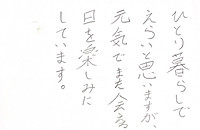 ひとり暮らしで
えらいと思いますが、
元気でまた会える
日を楽しみに
しています。